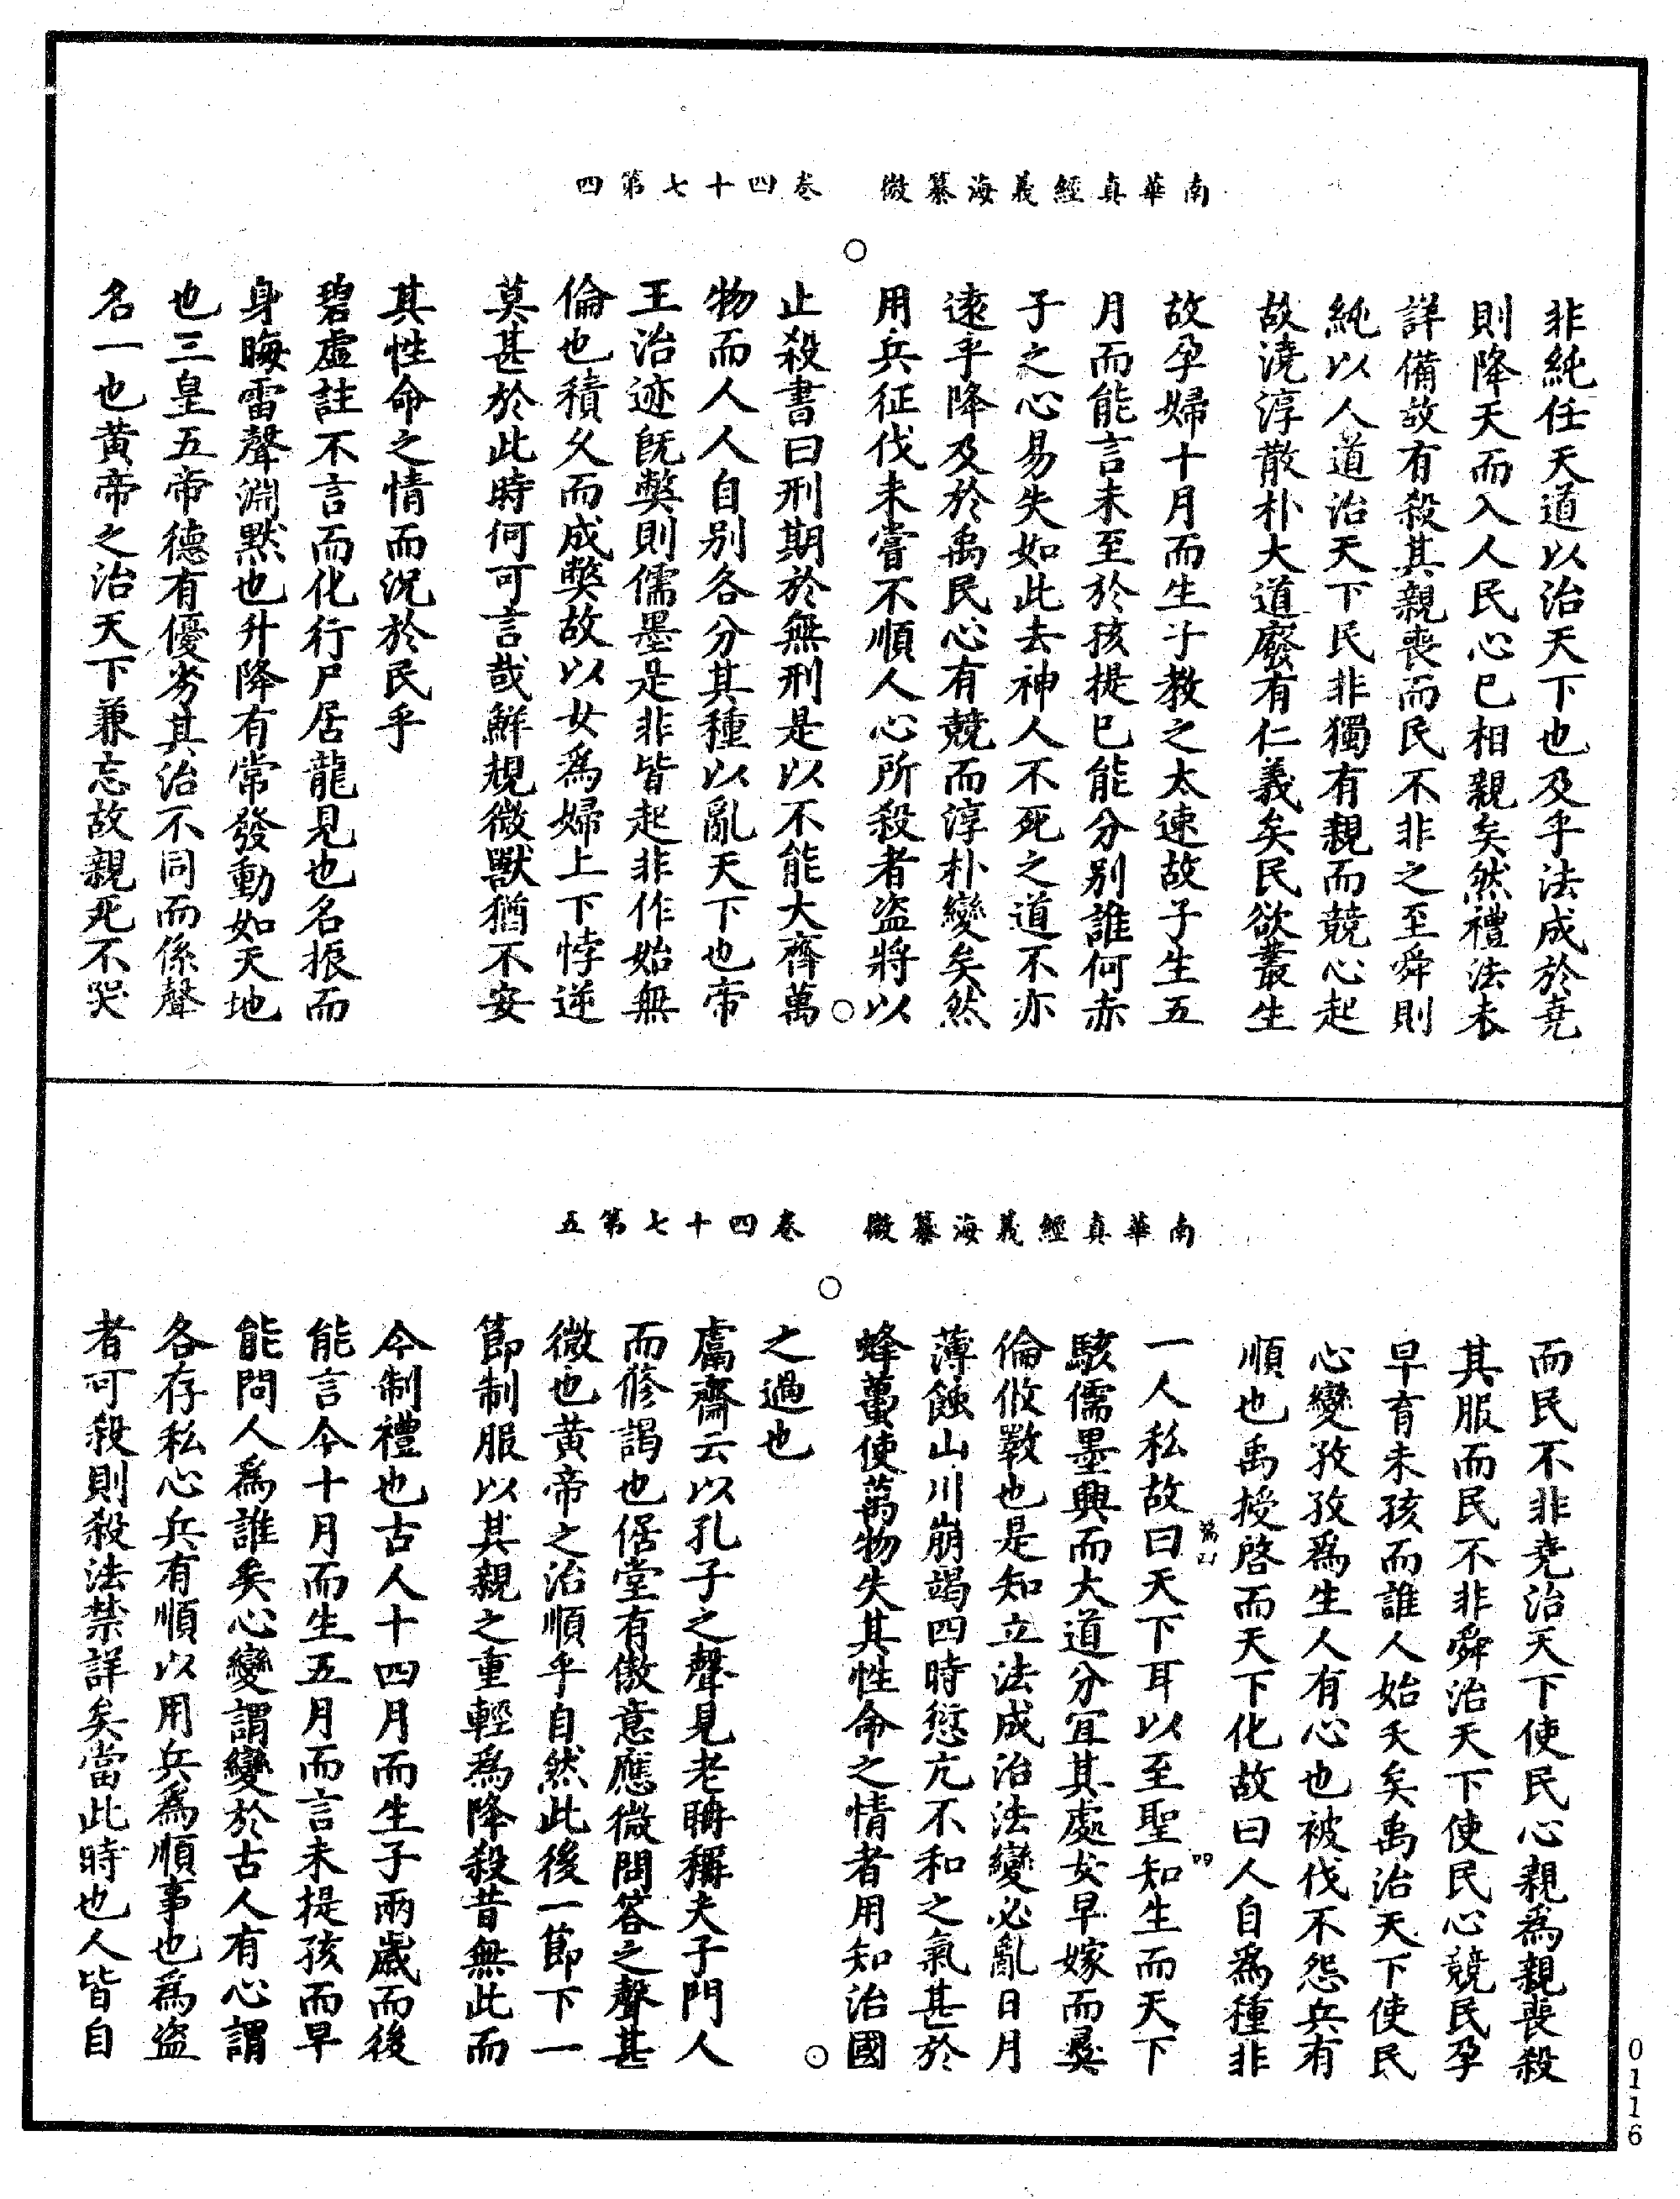 南華真經義海纂微　卷四十七第四
非純任天道以治天下也及乎法成於堯
則降天而入人民心已相親矣然禮法未
詳備故有殺其親喪而民不非之至舜則
純以人道治天下民非獨有親而競心起
故澆淳散朴大道廢有仁義矣民欲叢生
故孕婦十月而生子教之太速故子生五
月而能言未至於孩提已能分別誰何赤
子之心易失如此去神人不死之道不亦
遠乎降及於禹民心有競而淳朴變矣然
用兵征伐未嘗不順人心所殺者盜將以
止殺書曰刑期於無刑是以不能大齊萬
物而人人自別各分其種以亂天下也帝
王治迹既獘則儒墨是非皆起非作始無
倫也積久而成獘故以女為婦上下悖逆
莫甚於此時何可言哉鮮規微獸猶不安
其性命之情而況於民乎
碧虛註不言而化行尸居龍見也名振而
身晦雷聲淵默也升降有常發動如天地
也三皇五帝德有優劣其治不同而係聲
名一也黃帝之治天下兼忘故親死不哭
南華真經義海纂微　卷四十七第五
而民不非堯治天下使民心親為親喪殺
其服而民不非舜治天下使民心競民孕
早育未孩而誰人始夭矣禹治天下使民
心變孜孜為生人有心也被伐不怨兵有
順也禹授啓而天下化故曰人自為種非
一人私故曰天下耳以至聖知生而天下
駭儒墨興而大道分宜其處女早嫁而彝
倫攸斁也是知立法成治法變必亂日月
薄蝕山川崩竭四時愆亢不和之氣甚於
蜂蠆使萬物失其性命之情者用知治國
之過也
鬳齋云以孔子之聲見老聃稱夫子門人
而修謁也倨堂有傲意應微問答之聲甚
微也黃帝之治順乎自然此後一節下一
節制服以其親之重輕為降殺昔無此而
今制禮也古人十四月而生子兩歲而後
能言今十月而生五月而言未提孩而早
能問人為誰矣心變謂變於古人有心謂
各存私心兵有順以用兵為順事也為盜
者可殺則殺法禁詳矣當此時也人皆自
0116